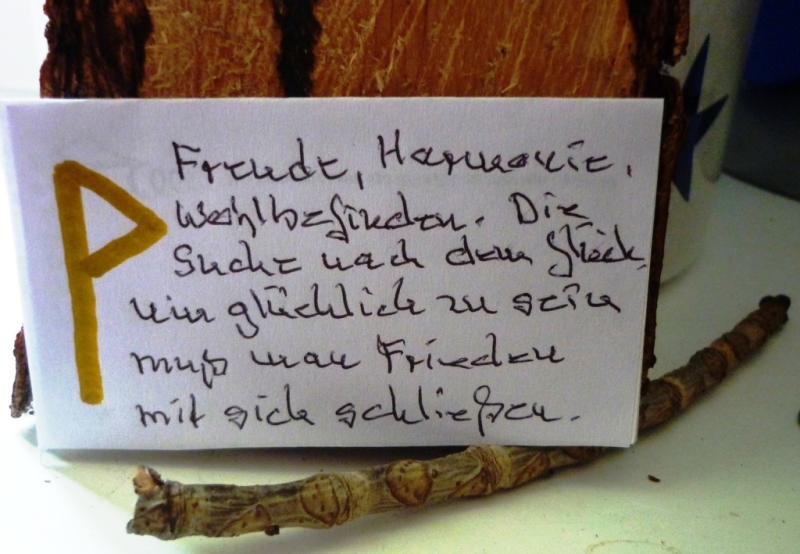 ᚹ
Freude, Harmonie,
Wohlbefinden. Die
Suche nach dem Glück,
um glücklich zu sein
muß man Frieden
mit sich schließen.